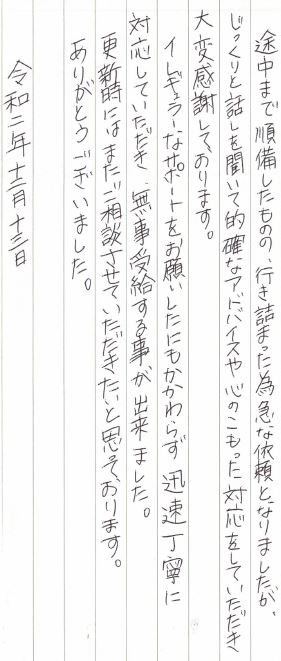 途中まで順備したものの、行き詰まった為急な依頼となりましたが、
じっくりと話しを聞いて的確なアドバイスや心のこもった対応をしていただき
大変感謝しております。
イレギュラーなサポートをお願いしたにもかかわらず迅速丁寧に
対応していただき、無事受給する事が出来ました。
更新時にはまたご相談させていただきたいと思っております。
ありがとうございました。
令和二年十二月十三日